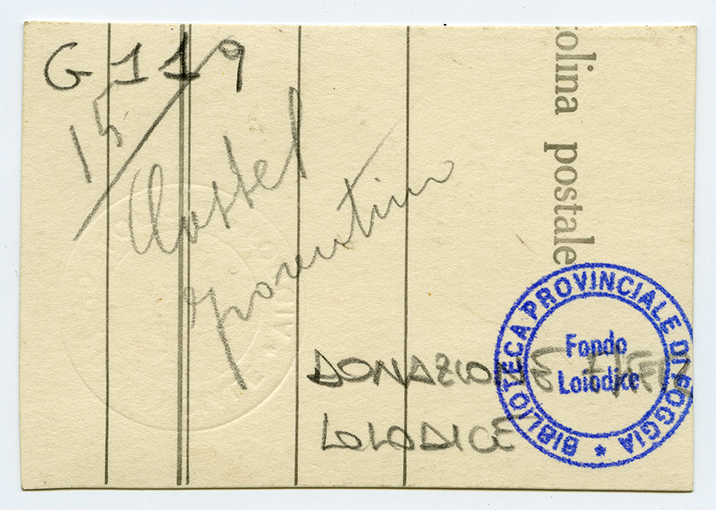 G119
15
Castel
Fiorentino
olina postale
DONAZIONE
LOIODICE
BIBLIOTECA PROVINCIALE DI FOGGIA *
Fondo
Loiodice